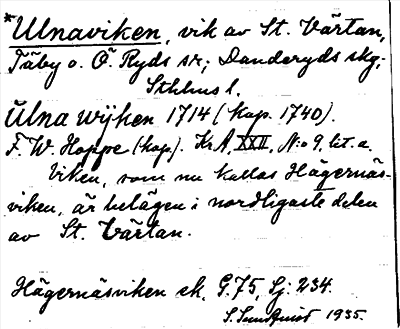 *Ulnaviken, vik av St. Värtan,
Täby o. Ö. Ryds sr; Danderyds skg;
Sthlms l.
Ulna wijken 1714 (kop. 1740).
F. W. Hoppe (kop). Kr A, XXII, N:o 9. lit. a.
Viken, som nu kallas Hägernäs-
viken, är belägen i nordligaste delen
av St. Värtan.
Hägernäsviken ek. G. 75, Sj: 234.
S. Sundquist 1935.